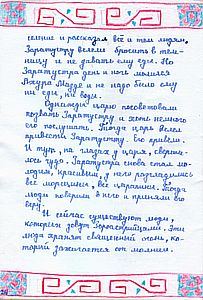 селище и рассказал всё и тем людям.
Заратустру велели бросить в тем-
ницу и не давать ему еды. Но
Заратустра день и ночь молился
Ахура Мазде и не надо было ему
ни еды, ни воды.
Однажды царю посоветовали
позвать Заратустру и хоть немного
его послушать. Тогда царь велел
привести Заратустру. Его привели.
И тут, на глазах у царя, сверши-
лось чудо. Заратустра снова стал мо-
лодым, красивым, у него разгладились
все морщины, все царапины. Тогда
люди поверили в него и приняли его
веру.
И сейчас существуют люди,
которых зовут Зороастрийцами. Эти
люди хранят священный огонь, ко-
торый зажигается от молнии.